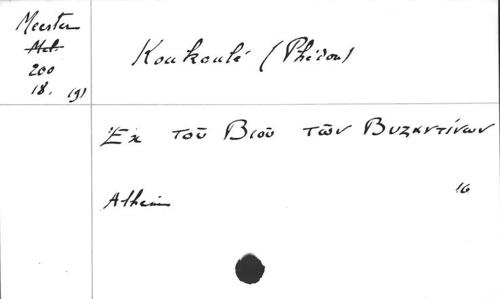 Meester
Act.
200
18. (9)
Koukoulé (Phédon)
Ἐκ τοῦ Βιοῦ τῶν Βυζαντίνων
Athènes
16